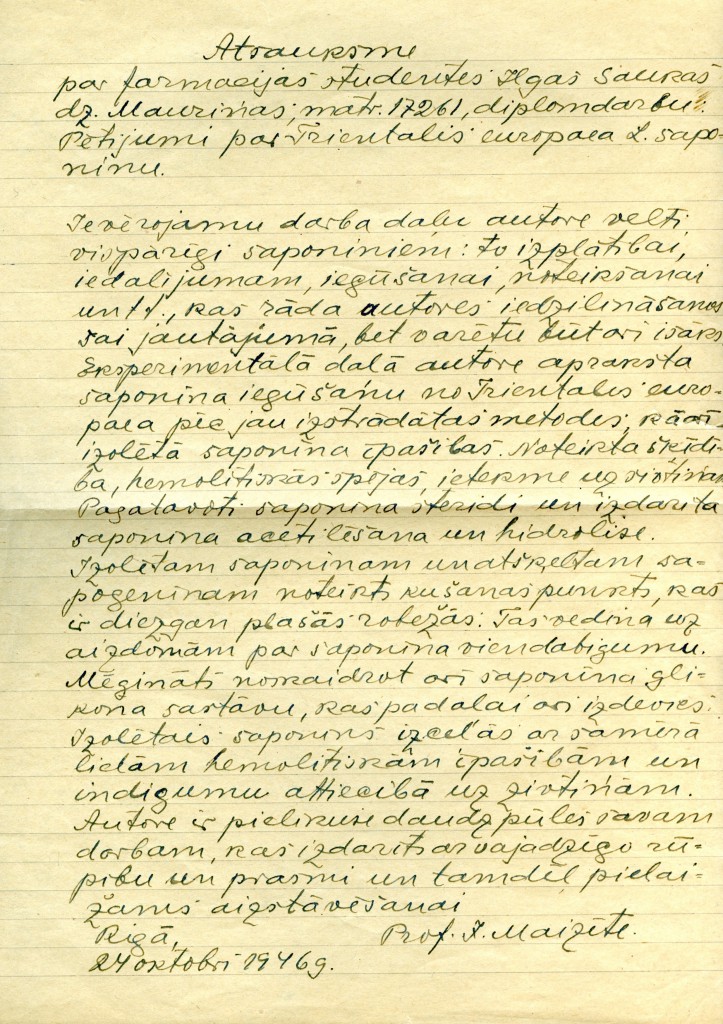 Atsauksme
par farmacijas studentes Ilgas Saukas
dz. Mauriņas, matr. 17261, diplomdarbu:
Pētijumi par Trientalis europaea L. sapo-
ninu.
Ievērojamu darba daļu autore velti
vispārīgi saponiniem: to izplātibai,
iedalijumam, iegūšanai, noteikšanai
un t.t., kas rāda autores iedziļināšanos
šai jautājumā, bet varētu būt arī isāks
Eksperimentālā daļā autore apraksta
saponina iegūšanu no Trientalis euro-
paea pēc jau izstrādātas metodes, kā arī
izolētā saponīna īpašības. Noteikta šķīdi-
ba, hemolitiskās spējas, ietekme uz zivtiņām
Pagatavoti saponina steridi un izdarīta
saponina acetilēšana un hidrolize.
Izolētam saponinam un atšķeltam sa-
pogeninam noteikts kušanas punkts, kas
ir diezgan plašās robežās. Tas vedina uz
aizdomām par saponīna viendabigumu.
Mēģināts noskaidrot arī saponiņa gli-
kona sastāvu, kas pa daļai arī izdevies.
Izolētais saponins izceļas ar samērā
lielām hemolitiskām īpašībām un
indigumu attiecībā uz zivtiņām.
Autore ir pielikuse daudz pūles savam
darbam, kas izdarīts ar vajadzīgo rū-
pību un prasmi un tamdēļ pielai-
žams aizstāvēšanai
Rigā, Prof. J. Maizīte.
24 oktobrī 1946 g.